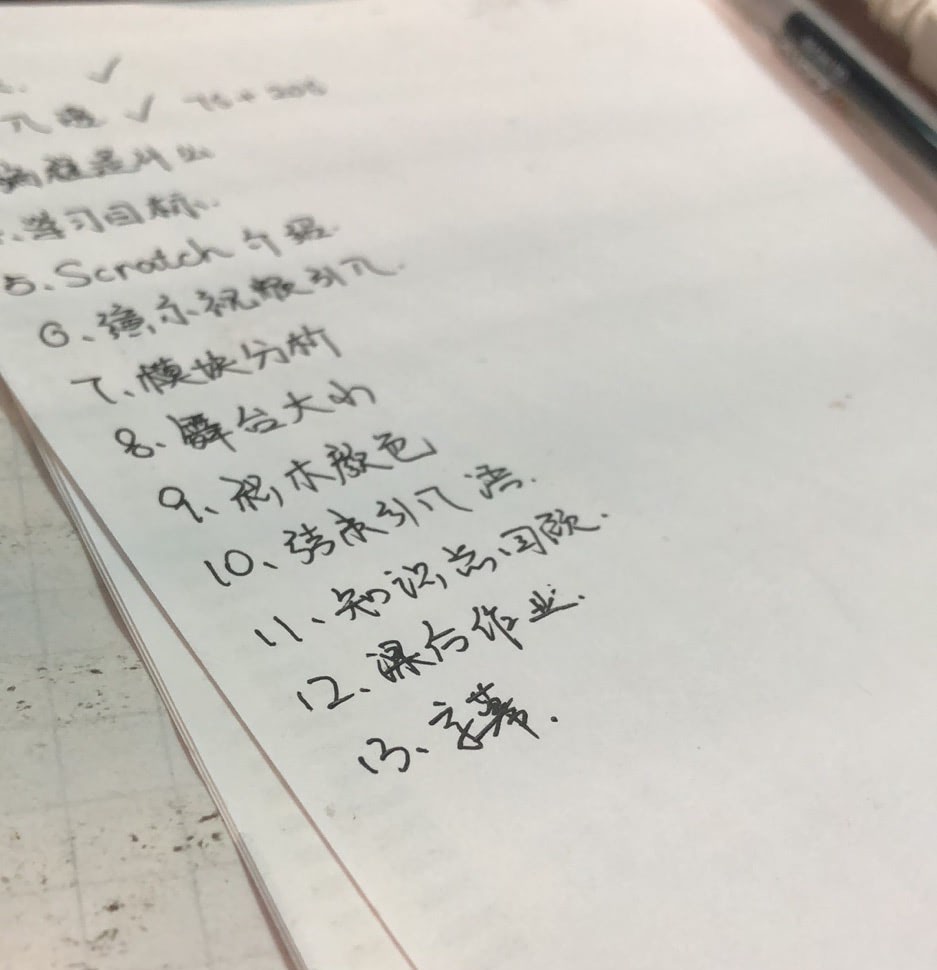 入港 ✓ 7s + 20s
编程是什么
学习目标.
5、Scratch 介绍.
6、演示视频引入.
7、模块分析
8、舞台大小
9、积木颜色
10、结束引入语.
11、知识点回顾.
12、课后作业.
13、字幕.